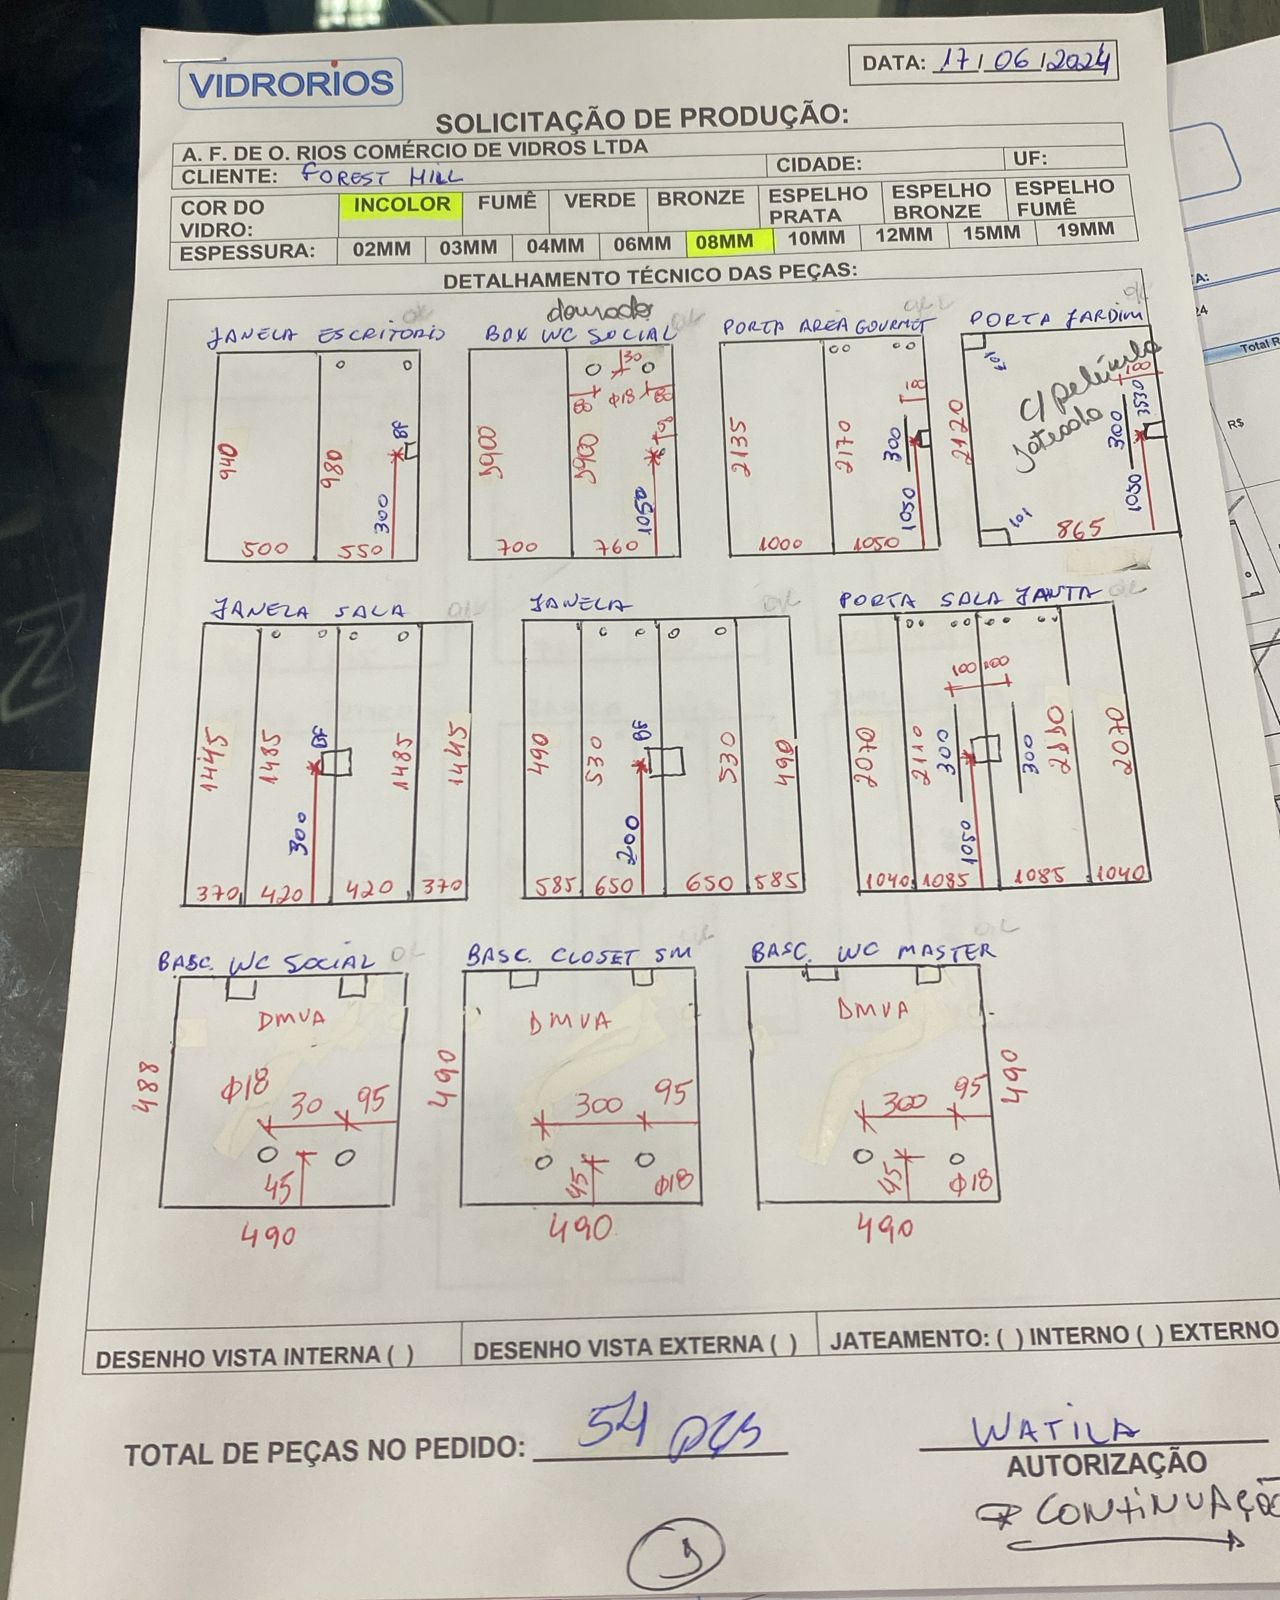 VIDRORIOS
DATA: 17/06/2024
SOLICITAÇÃO DE PRODUÇÃO:
A. F. DE O. RIOS COMÉRCIO DE VIDROS LTDA
CLIENTE: FOREST HILL CIDADE: UF:
COR DO VIDRO: INCOLOR FUMÊ VERDE BRONZE ESPELHO PRATA ESPELHO BRONZE ESPELHO FUMÊ
ESPESSURA: 02MM 03MM 04MM 06MM 08MM 10MM 12MM 15MM 19MM
DETALHAMENTO TÉCNICO DAS PEÇAS:
JANELA ESCRITORIO OK
940 980 BF 300
500 550
dourado
BOX WC SOCIAL OK
30
80 Φ18 80
1900 1900 50 1050
700 760
PORTA AREA GOURMET OK
100
2135 2170 300 1050
1000 1050
PORTA JARDIM OK
107
C/ película Jateada
100
2120 300 3530 1050
101
865
JANELA SALA OK
1445 1485 BF 300 1485 1445
370 420 420 370
JANELA OK
490 530 BF 200 530 490
585 650 650 585
PORTA SALA JANTA OK
100 100
2070 2110 300 1050 300 2110 2070
1040 1085 1085 1040
BASC. WC SOCIAL OK
DMVA
488 Φ18 30 95
45
490
BASC. CLOSET SM OK
DMVA
490 300 95
45 Φ18
490
BASC. WC MASTER OK
DMVA
300 95 490
45 Φ18
490
DESENHO VISTA INTERNA ( ) DESENHO VISTA EXTERNA ( ) JATEAMENTO: ( ) INTERNO ( ) EXTERNO
TOTAL DE PEÇAS NO PEDIDO: 54 pçs
WATILA
AUTORIZAÇÃO
* CONTINUAÇÃO
A:
24
Total R
R$